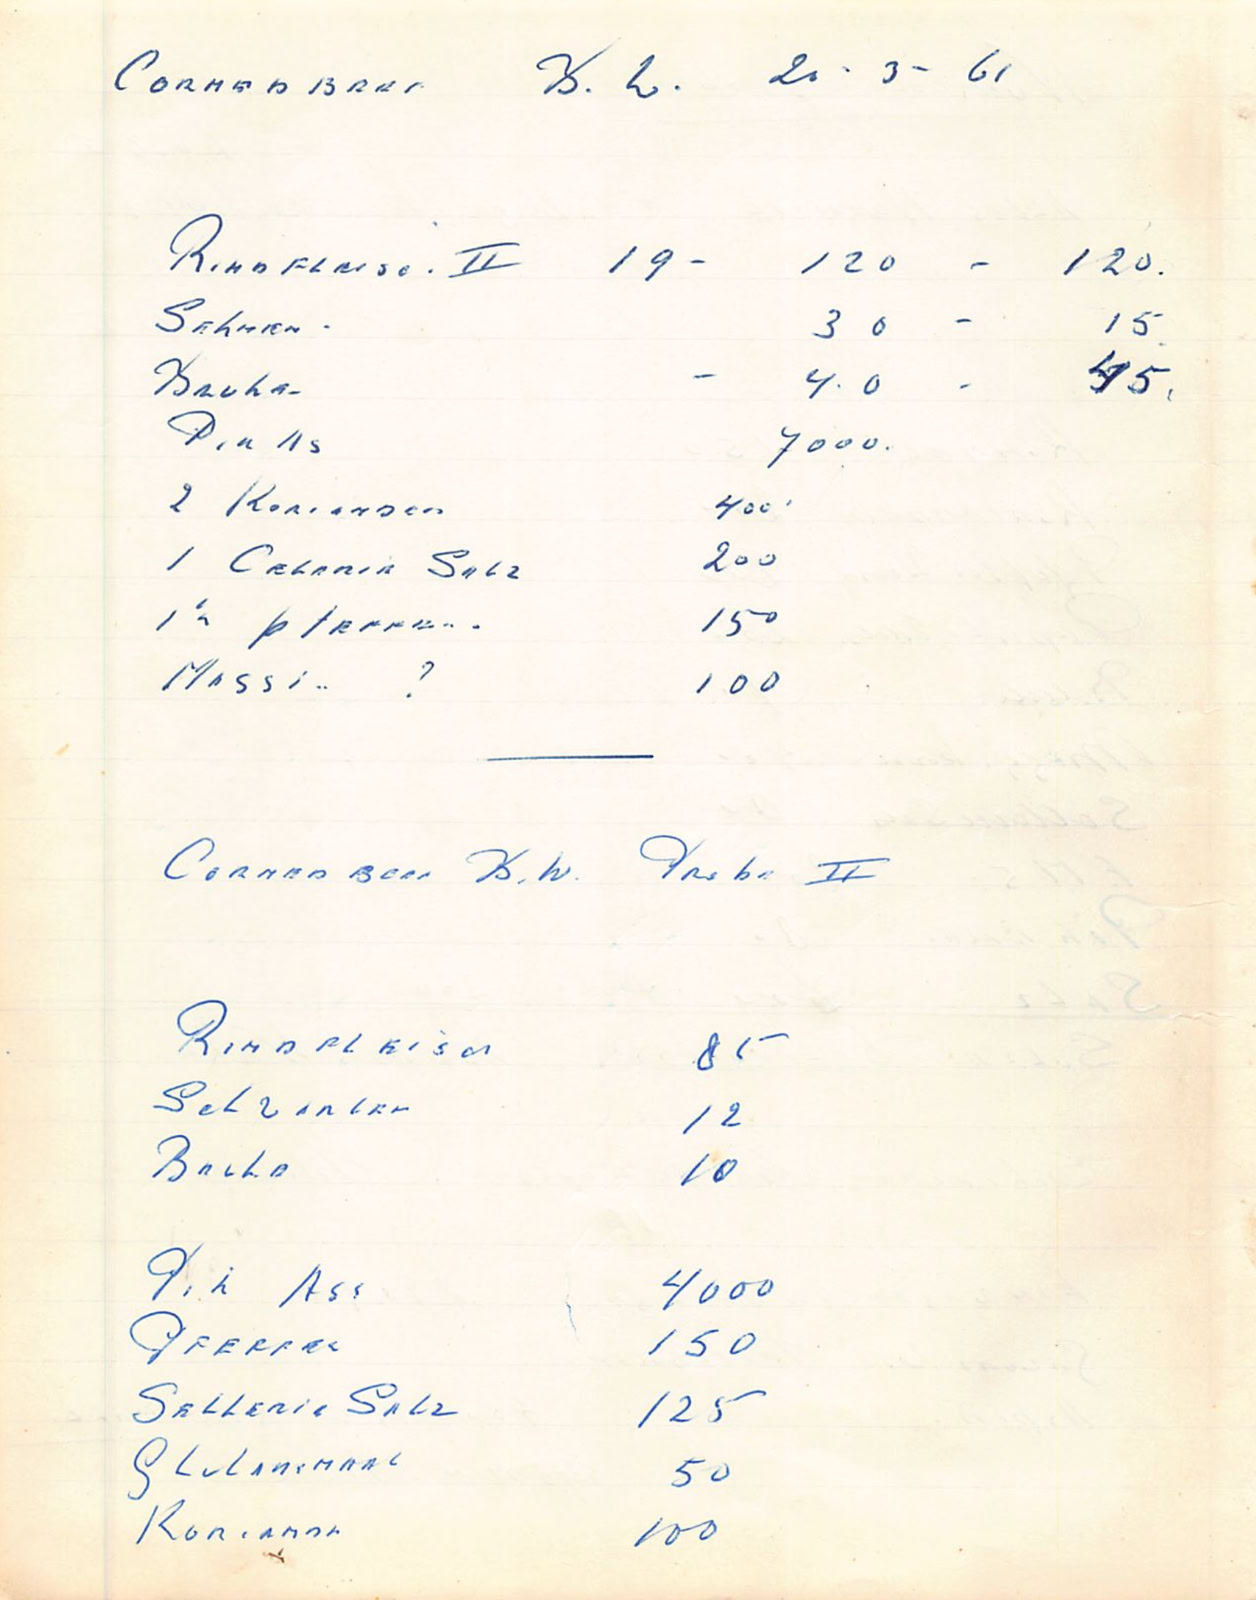 Corned Beef K. W. 20 - 3 - 61
Rindfleisc. II 19 - 120 - 120.
Sehnen. 30 - 15.
Bruhe - 40 - 45.
7000.
2 Koriander 400
1 Celerie Salz 200
1½ pfeffer.. 150
Massi.. ? 100
Corned Beef K.W. Probe II
Rindfleisch 85
12
Bruhe 10
Pik Ass 4000
Pfeffer 150
Sellerie Salz 125
50
Koriander 100